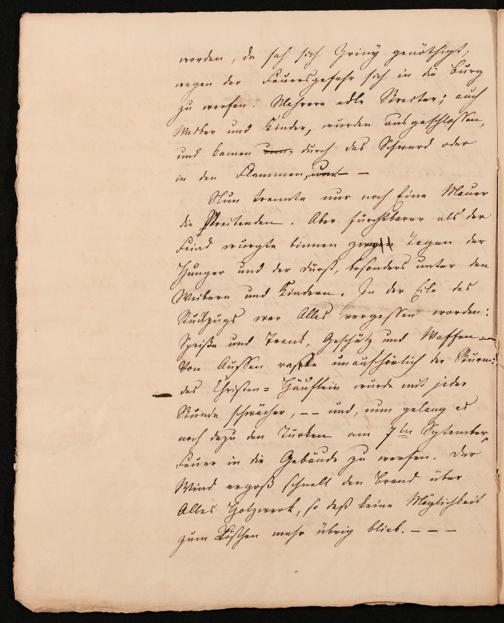 worden, da sah sich Zriny genöthigt,
wegen der Feuersgefahr sich in die Burg
zu werfen. Mehrere edle Streiter; auch
Weiber und Kinder, wurden ausgeschlossen,
und kamen durch das Schwerd oder
in den Flammen, um. —
Nun trennte nur noch Eine Mauer
die Streitenden. Aber furchtbarer als der
Feind würgte binnen zweien Tagen der
Hunger und der Durst, besonders unter den
Weibern und Kindern. In der Eile des
Rückzugs war Alles vergessen worden:
Speise und Trank, Geschütz und Waffen. —
Von Aussen raste unaufhörlich der Sturm:
des Christen= Häuflein wurde mit jeder
Stunde schwächer, -- und, nun gelang es
noch dazu den Türken am 7ten September,
Feuer in die Gebäude zu werfen. Der
Wind ergoß schnell den Brand über
Alles Holzwerk, so daß keine Möglichkeit
zum Löschen mehr übrig blieb. - - -